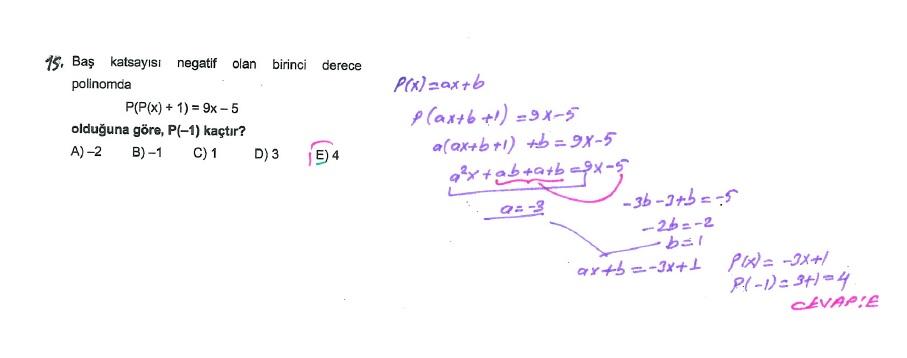 15. Baş katsayısı negatif olan birinci derece
polinomda
P(P(x) + 1) = 9x – 5
olduğuna göre, P(–1) kaçtır?
A) –2 B) –1 C) 1 D) 3 E) 4
P(x) = ax+b
P(ax+b+1) = 9x-5
a(ax+b+1) +b = 9x-5
a²x + ab+a+b = 9x-5
a = -3
-3b-3+b = -5
-2b = -2
b = 1
ax+b = -3x+1
P(x) = -3x+1
P(-1) = 3+1 = 4
CEVAP:E